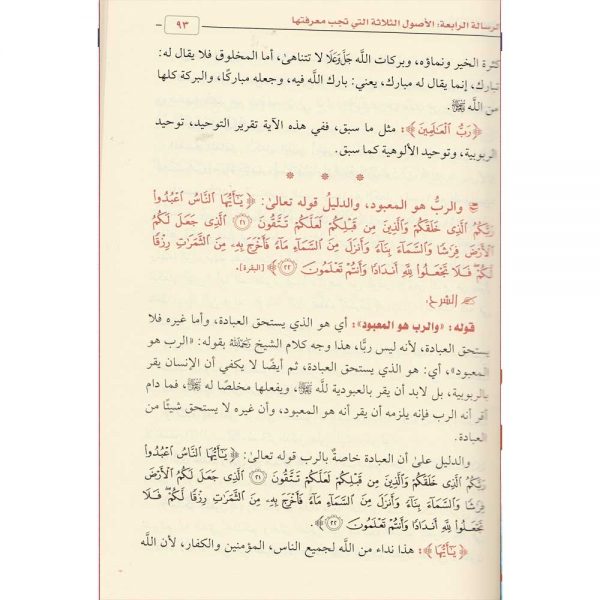 الرسالة الرابعة: الأصول الثلاثة التي تجب معرفتها
٩٣
كثرة الخير ونماؤه، وبركات الله جَلَّ وَعَلَا لا تتناهىٰ، أما المخلوق فلا يقال له:
تبارك، إنما يقال له مبارك، يعني: بارك الله فيه، وجعله مباركًا، والبركة كلها
من الله ﷻ.
﴿رَبُّ الْعَالَمِينَ﴾: مثل ما سبق، ففي هذه الآية تقرير التوحيد، توحيد
الربوبية، وتوحيد الألوهية كما سبق.
* * *
والربُّ هو المعبود، والدليلُ قوله تعالىٰ: ﴿يَٰٓأَيُّهَا النَّاسُ اعْبُدُوا
رَبَّكُمُ الَّذِي خَلَقَكُمْ وَالَّذِينَ مِن قَبْلِكُمْ لَعَلَّكُمْ تَتَّقُونَ ﴿٢١﴾ الَّذِي جَعَلَ لَكُمُ
الْأَرْضَ فِرَٰشًا وَالسَّمَآءَ بِنَآءً وَأَنزَلَ مِنَ السَّمَآءِ مَآءً فَأَخْرَجَ بِهِۦ مِنَ الثَّمَرَٰتِ رِزْقًا
لَّكُمْ ۖ فَلَا تَجْعَلُوا لِلَّهِ أَندَادًا وَأَنتُمْ تَعْلَمُونَ ﴿٢٢﴾﴾ [البقرة].
الشرح:
قوله: «والرب هو المعبود»: أي هو الذي يستحق العبادة، وأما غيره فلا
يستحق العبادة، لأنه ليس ربًّا، هذا وجه كلام الشيخ رَحِمَهُ اللَّهُ بقوله: «الرب هو
المعبود»، أي: هو الذي يستحق العبادة، ثم أيضًا لا يكفي أن الإنسان يقر
بالربوبية، بل لابد أن يقر بالعبودية لله ﷻ، ويفعلها مخلصًا له ﷻ، فما دام
أقر أنه الرب فإنه يلزمه أن يقر أنه هو المعبود، وأن غيره لا يستحق شيئًا من
العبادة.
والدليل علىٰ أن العبادة خاصةٌ بالرب قوله تعالىٰ: ﴿يَٰٓأَيُّهَا النَّاسُ اعْبُدُوا
رَبَّكُمُ الَّذِي خَلَقَكُمْ وَالَّذِينَ مِن قَبْلِكُمْ لَعَلَّكُمْ تَتَّقُونَ ﴿٢١﴾ الَّذِي جَعَلَ لَكُمُ الْأَرْضَ
فِرَٰشًا وَالسَّمَآءَ بِنَآءً وَأَنزَلَ مِنَ السَّمَآءِ مَآءً فَأَخْرَجَ بِهِۦ مِنَ الثَّمَرَٰتِ رِزْقًا لَّكُمْ ۖ فَلَا
تَجْعَلُوا لِلَّهِ أَندَادًا وَأَنتُمْ تَعْلَمُونَ ﴿٢٢﴾﴾.
﴿يَٰٓأَيُّهَا﴾: هذا نداء من الله لجميع الناس، المؤمنين والكفار، لأن الله